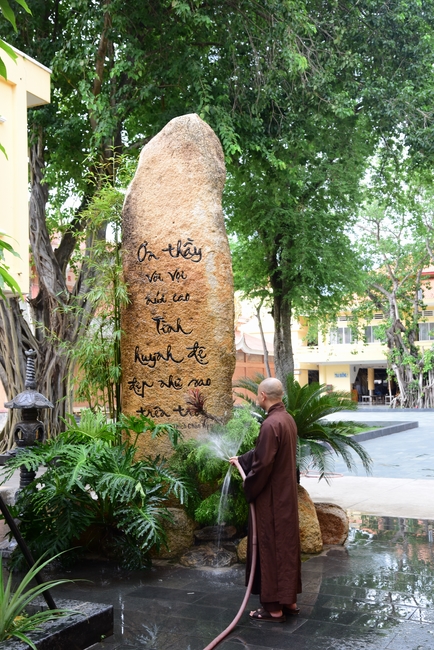 Ơn thầy
vời vợi
núi cao
Tình
huynh đệ
đẹp như sao
trên trời